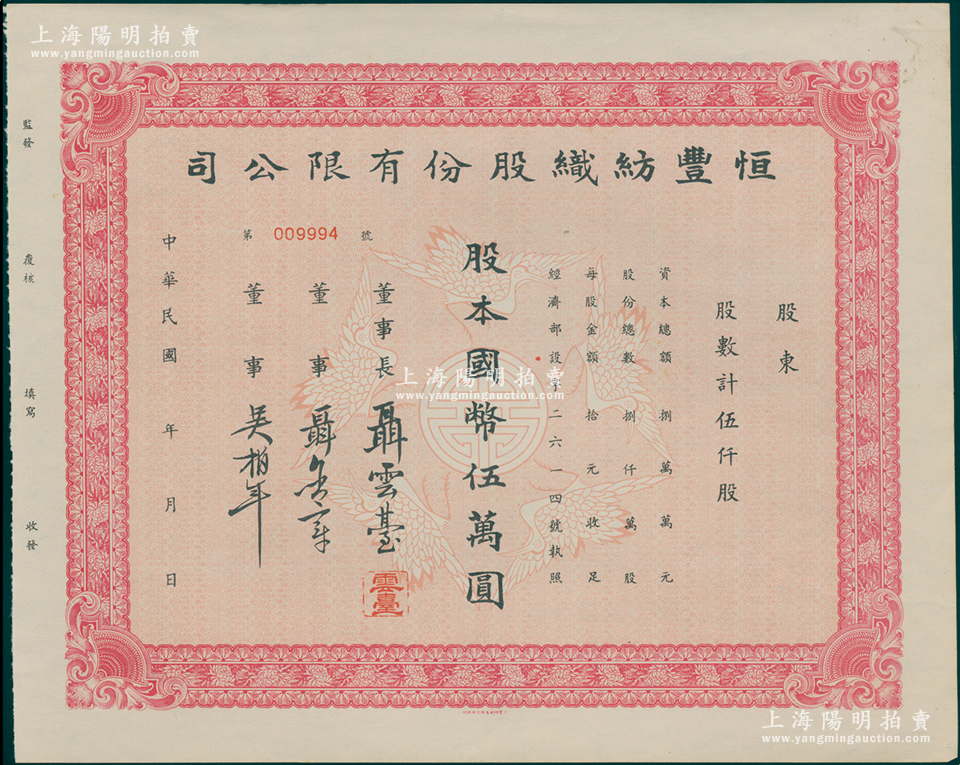 上海陽明拍賣
www.yangmingauction.com
恒豐紡織股份有限公司
股東
股數計伍仟股
資本總額捌萬萬元
股份總數捌仟萬股
每股金額拾元收足
經濟部設字二六一四號執照
股本國幣伍萬圓
第 009994 號
董事長 聶雲臺
雲臺
董事 聶
董事 吳柏年
中華民國 年 月 日
監發
覆核
填寫
收發
上海陽明拍賣
www.yangmingauction.com
上海陽明拍賣
www.yangmingauction.com